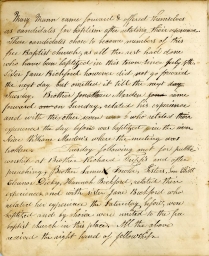 Mary Mann came forward & offered themselves
as candidates for baptism after stating their experience
These candidates chose to become members of this
her Baptist church, as all the rest have done
who have been baptized in this town since July 4th.
Sister Jane Bickford however did not go forward
the next day but omitted it till the next
Sunday. Brother Jonathan Meader came
forward on Sunday, related his experience
and with the other who related their
experience the day before was baptized
Elder William when the meeting was
Sunday following met for public
worship at Brother Richard and after
preaching, Brother
Hannah Bickford, related their
experience and with Sister Jane Bickford who
related her experience the Saturday before, were
baptized and by choice were united to the free
baptist church in this place. All the above
received the right hand of fellowship.